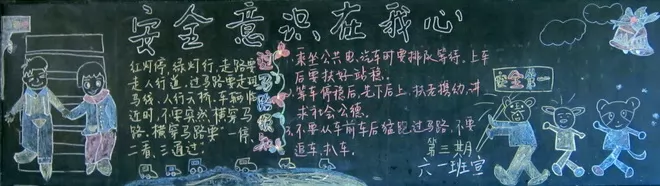 安全意识在我心
红灯停,绿灯行,走路要
走人行道,过马路要走斑
马线、人行天桥,车辆临
近时,不要突然横穿马
路,横穿马路要一停、
二看、三通过。
过马路须知
1.乘坐公共电、汽车时要排队等待,上车
后要扶好站稳。
2.等车停稳后,先下后上,扶老携幼,讲
求社会公德。
3.不要从车前车后猛跑过马路,不要
追车、扒车。
安全第一
第三期
六一班宣